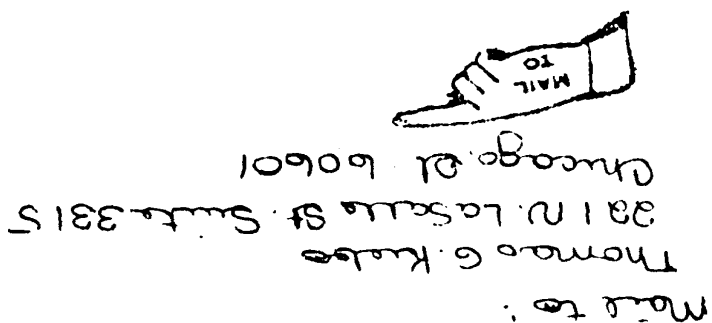 Mail to:
Thomas G.
221 N. LaSalle St. Suite 3315
Chicago, Il 60601
MAIL
TO